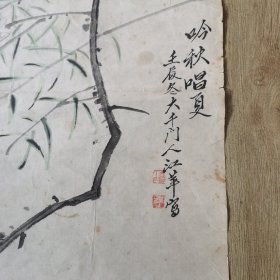 吟秋唱夏
壬辰冬大千门人江苹写